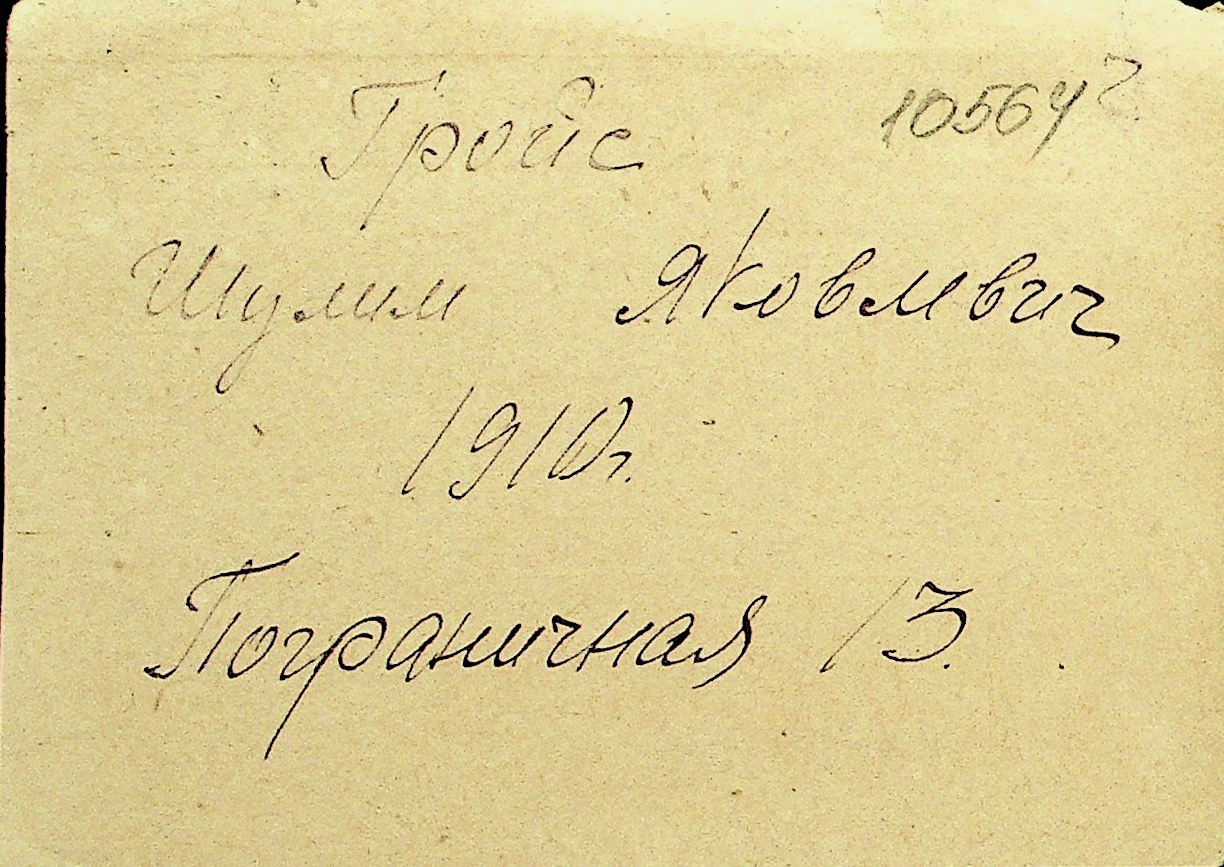 Гройс 10564
Шулим Яковлвич
1910г.
Пограничная 13.